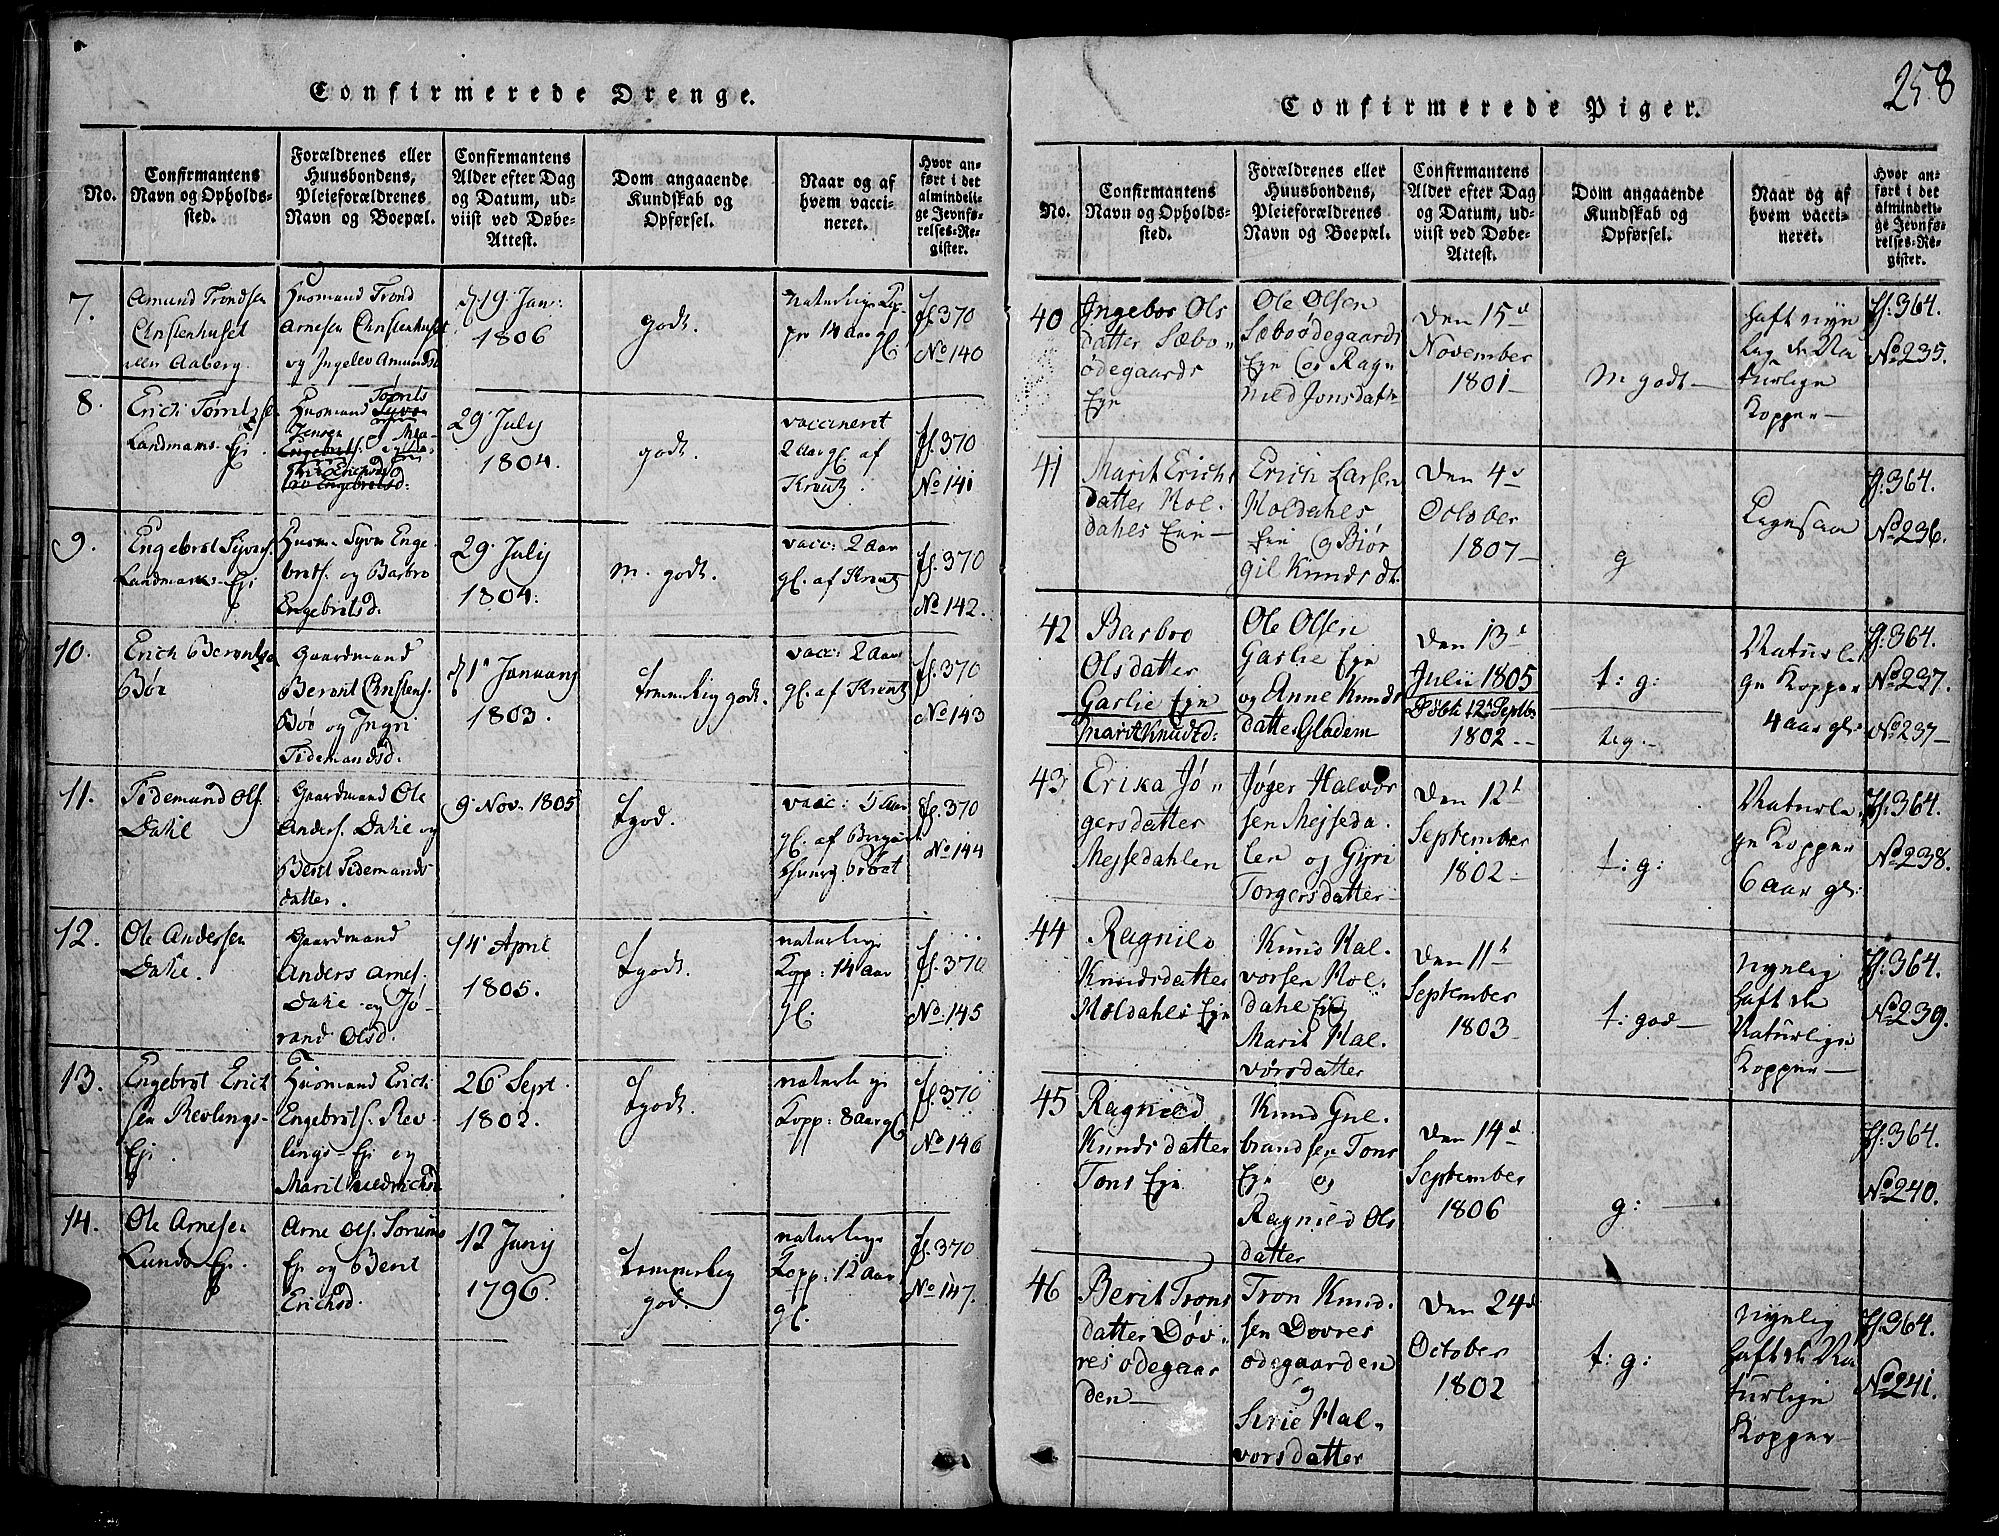 258
Confirmerede Drenge.
No.
Confirmantens
Navn og Opholds-
sted.
Forældrenes eller
Huusbondens,
Pleieforældrenes
Navn og Boepæl.
Confirmantens
Alder efter Dag
og Datum, ud-
viist ved Døbe-
Attest.
Dom angaaende
Kundskab og
Opførsel.
Naar og af
hvem vacci-
neret.
Hvor an-
ført i det
almindeli-
ge Jevnfø-
relses-Re-
gister.
7.
Amund Trondsen
Christenhuset
Aaberg.
Husmand Trond
Arnesen Christenhuset
og Ingelev Amundsd
19 Jan:
1806
godt.
naturlige Kop-
per 14 aar
gl.
fl. 370
No 140
8.
Erich
Landmarks-Ej
Husmand
Jensen
29 July
1804.
godt.
vaccineret
2 aar gl. af
Krautz.
fl. 370
No 141
9.
Engebret Syvers.
Landmarks-Ej
Husm. Syver Enge-
brets. og Barbro
Engebretsd.
29 July
1804.
m. godt.
vacc: 2 aar
gl. af Krautz
fl. 370
No 142.
10.
Erich Berentsen
Bøe
Gaardmand
Berent Christens.
Bøe og Ingri
Tidemandsd.
1 January
1803.
Temmelig godt.
vacc: 2 aar
gl. af Krautz
fl. 370
No 143
11.
Tidemand Ols.
Dahle
Gaardmand Ole
Anders. Dahle og
Berit Tidemands
datter.
9 Nov. 1805
tgod.
vacc: 5 aar
gl. af
fl. 370
No 144
12.
Ole Andersen
Dahle.
Gaardmand
Anders Arnes.
Dahle og Jø-
rand Olsd.
14 April
1805.
tgodt.
naturlige
Kopp: 14 aar
gl.
fl. 370
No. 145
13.
Engebret Erich
sen Revlings-
Ej.
Husmand Erich
Engebrets. Rev-
lings-Ej og
Marit
26 Sept.
1802.
tgodt.
naturlige
Kopp: 8 aar gl.
fl. 370
No 146
14.
Ole Arnesen
Lunde Ej.
Arne Ols. Sorums
Ej og Berit
Erichsd.
12 Juny
1796.
temmelig
god.
naturlige
Kopp: 12 aar
gl.
fl. 370
No 147.
Confirmerede Piger.
No.
Confirmantens
Navn og Opholds-
sted.
Forældrenes eller
Huusbondens,
Pleieforældrenes
Navn og Boepæl.
Confirmantens
Alder efter Dag
og Datum, ud-
viist ved Døbe-
Attest.
Dom angaaende
Kundskab og
Opførsel.
Naar og af
hvem vacci-
neret.
Hvor an-
ført i det
almindeli-
ge Jevnfø-
relses-Re-
gister.
40
Ingebor Ols
datter Sæbo-
ødegaards
Eye
Ole Olsen
Sæboødegaards
Eye og Rag-
nild Jonsdatr
Den 15d
November
1801-
m godt-
haft nyn
lig de Na
turlige
Kopper-
fl. 364.
No 235.
41
Marit Erichs
datter Hol-
dahls Eye-
Erich Larsen
Holdahls
Eye og Biør
gil Knuds dt.
Den 4d
October
1807-
g
Ligesaa
fl. 364.
No 236.
42
Barbro
Olsdatter
Garlie Eye
Marit Knudtd:
Ole Olsen
Garlie Eye
og Anne Knuds
datter Gladem
Den 13d
Julii 1805
Døbt 12t Septbr
1802.-
t: g:
tg.-
Naturli
ge Kopper
4 aar gl:
fl. 364.
No 237.
No 237-
43
Erika Jø-
gersdatter
Mejsedahlen
Jøger Halvor
sen Mejseda-
len og Gyri
Torgersdatter-
Den 12t
September
1802-
t: g:
Naturli
ge Kopper
6 aar gl:
fl. 364.
No 238.
44
Ragnild
Knudsdatter
Holdahls Eye
Knud Hal-
vorsen Hol-
dahl Eye
Marit Hal-
vorsdatter
Den 11t
September
1803
t: god-
Nynlig
haft de
Naturlige
Kopper-
fl. 364.
No 239.
45
Ragnild
Knudsdatter
Tons Eye
Knud Gul-
brandsen Tons
Eye og
Ragnild Ols
datter
Den 14d
September
1806
g:-
fl. 364.
No 240.
46
Berit Trons
datter Dov-
res ødegaar
den-
Tron Knud-
sen Dovres
ødegaarden
og
Sirie Hal-
vorsdatter
Den 24d
October
1802
t: g:
Nynlig
haft de Na
turlige
Kopper-
fl. 364.
No 241.